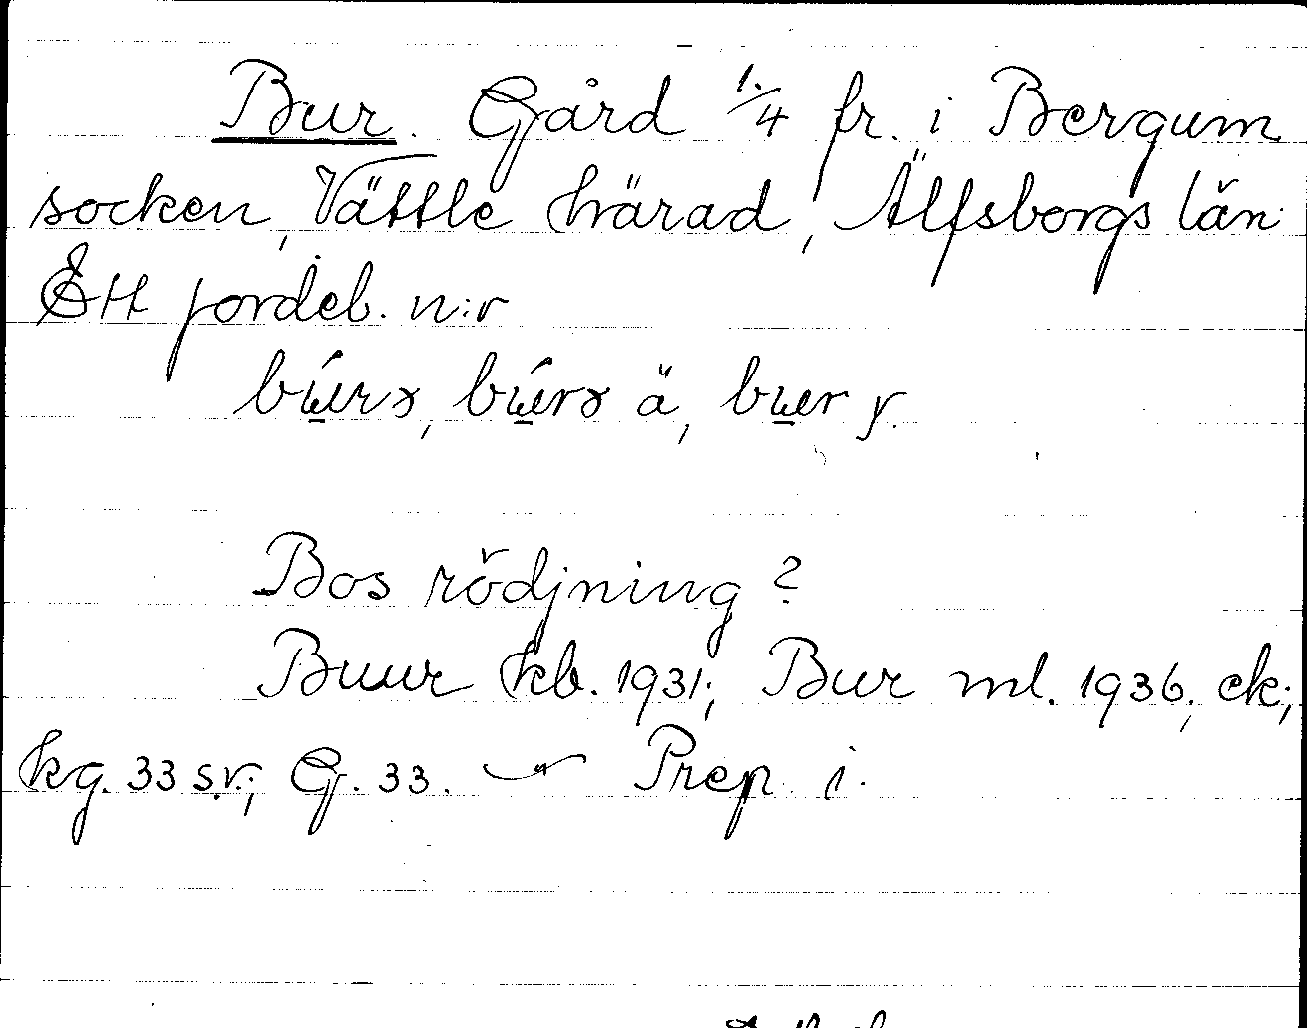 Bur. Gård 1/4 fr. i Bergum
socken, Vättle härad, Älfsborgs län.
Ett jordeb. n:r
bu̲rs, bu̲rs ä, bu̲r y.
Bos rödjning?
Buur kb. 1931; Bur ml. 1936; ek;
kg. 33 s.v.; G. 33. Prep. i.